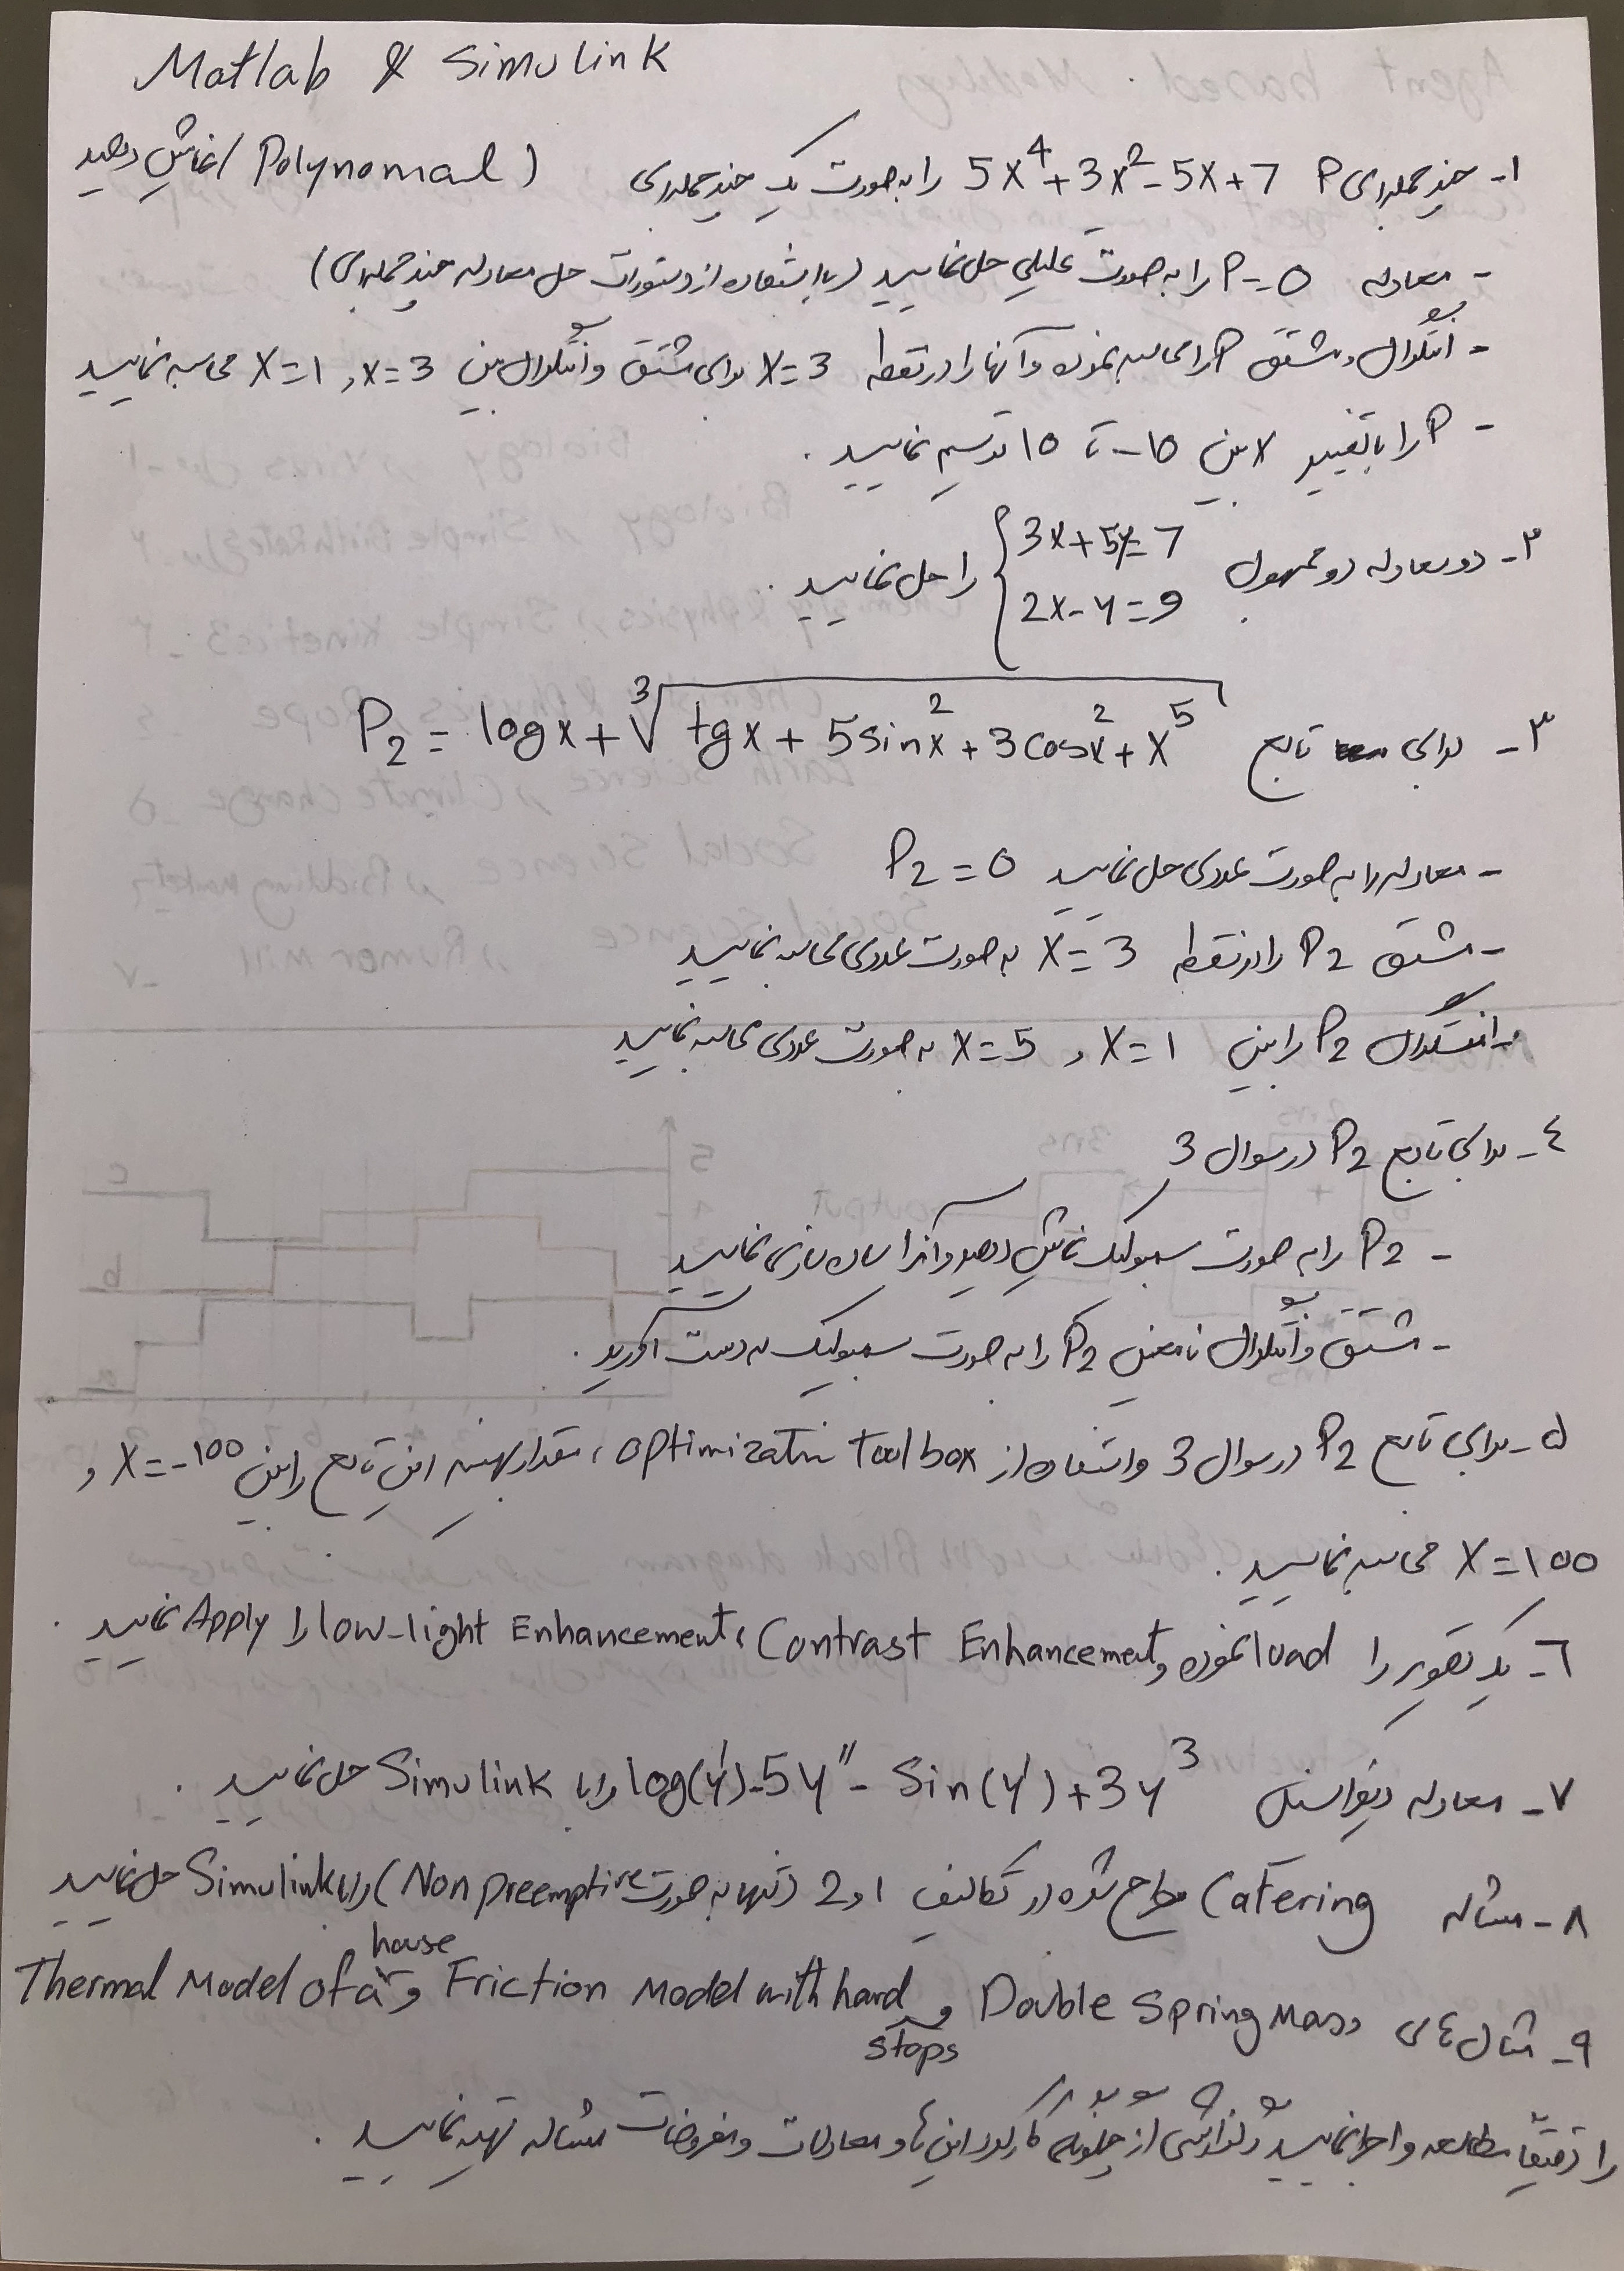 Matlab & Simulink
۱- چندجمله‌ای P 5x⁴+3x²-5x+7 را به صورت یک چندجمله‌ای (Polynomial) نمایش دهید
- معادله P=0 را به صورت تحلیلی حل نمایید (با استفاده از دستورات حل معادله چندجمله‌ای)
- انتگرال و مشتق P را محاسبه نموده و آنها را در نقطه x=3 برای مشتق و انتگرال بین x=3 و x=1 محاسبه نمایید
- P را با تغییر x بین -10 تا 10 ترسیم نمایید.
۲- دو معادله دو مجهول { 3x+5y=7
2x-y=9 را حل نمایید.
۳- برای تابع P₂ = logx + ∛(tgx + 5sinx² + 3cosx² + x⁵)
- معادله را به صورت عددی حل نمایید P₂ = 0
- مشتق P₂ را در نقطه x=3 به صورت عددی محاسبه نمایید
- انتگرال P₂ را بین x=1 و x=5 به صورت عددی محاسبه نمایید
٤- برای تابع P₂ در سوال 3
- P₂ را به صورت سمبولیک نمایش دهید و آنرا ساده سازی نمایید
- مشتق و انتگرال نامعین P₂ را به صورت سمبولیک به دست آورید.
۵- برای تابع P₂ در سوال 3 و استفاده از optimization toolbox، مقدار بهینه این تابع را بین x=-100 و
x=100 محاسبه نمایید.
٦- یک تصویر را load نموده و Contrast Enhancement، low-light Enhancement را Apply نمایید.
۷- معادله دیفرانسیل log(y')-5y''-sin(y')+3y³ را با Simulink حل نمایید.
۸- مساله Catering مطرح شده در تکالیف 1 و 2 (تنها به صورت Non preemptive) را با Simulink حل نمایید
۹- مثال های Double Spring Mass و Friction Model with hard stops و Thermal Model of a house
را دقیقا مطالعه و اجرا نمایید و گزارشی از چگونگی کارکرد این ها و معادلات و مفروضات مساله تهیه نمایید.